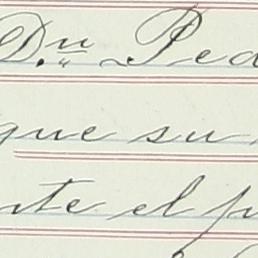 Dn. Ped
que su
nte el p